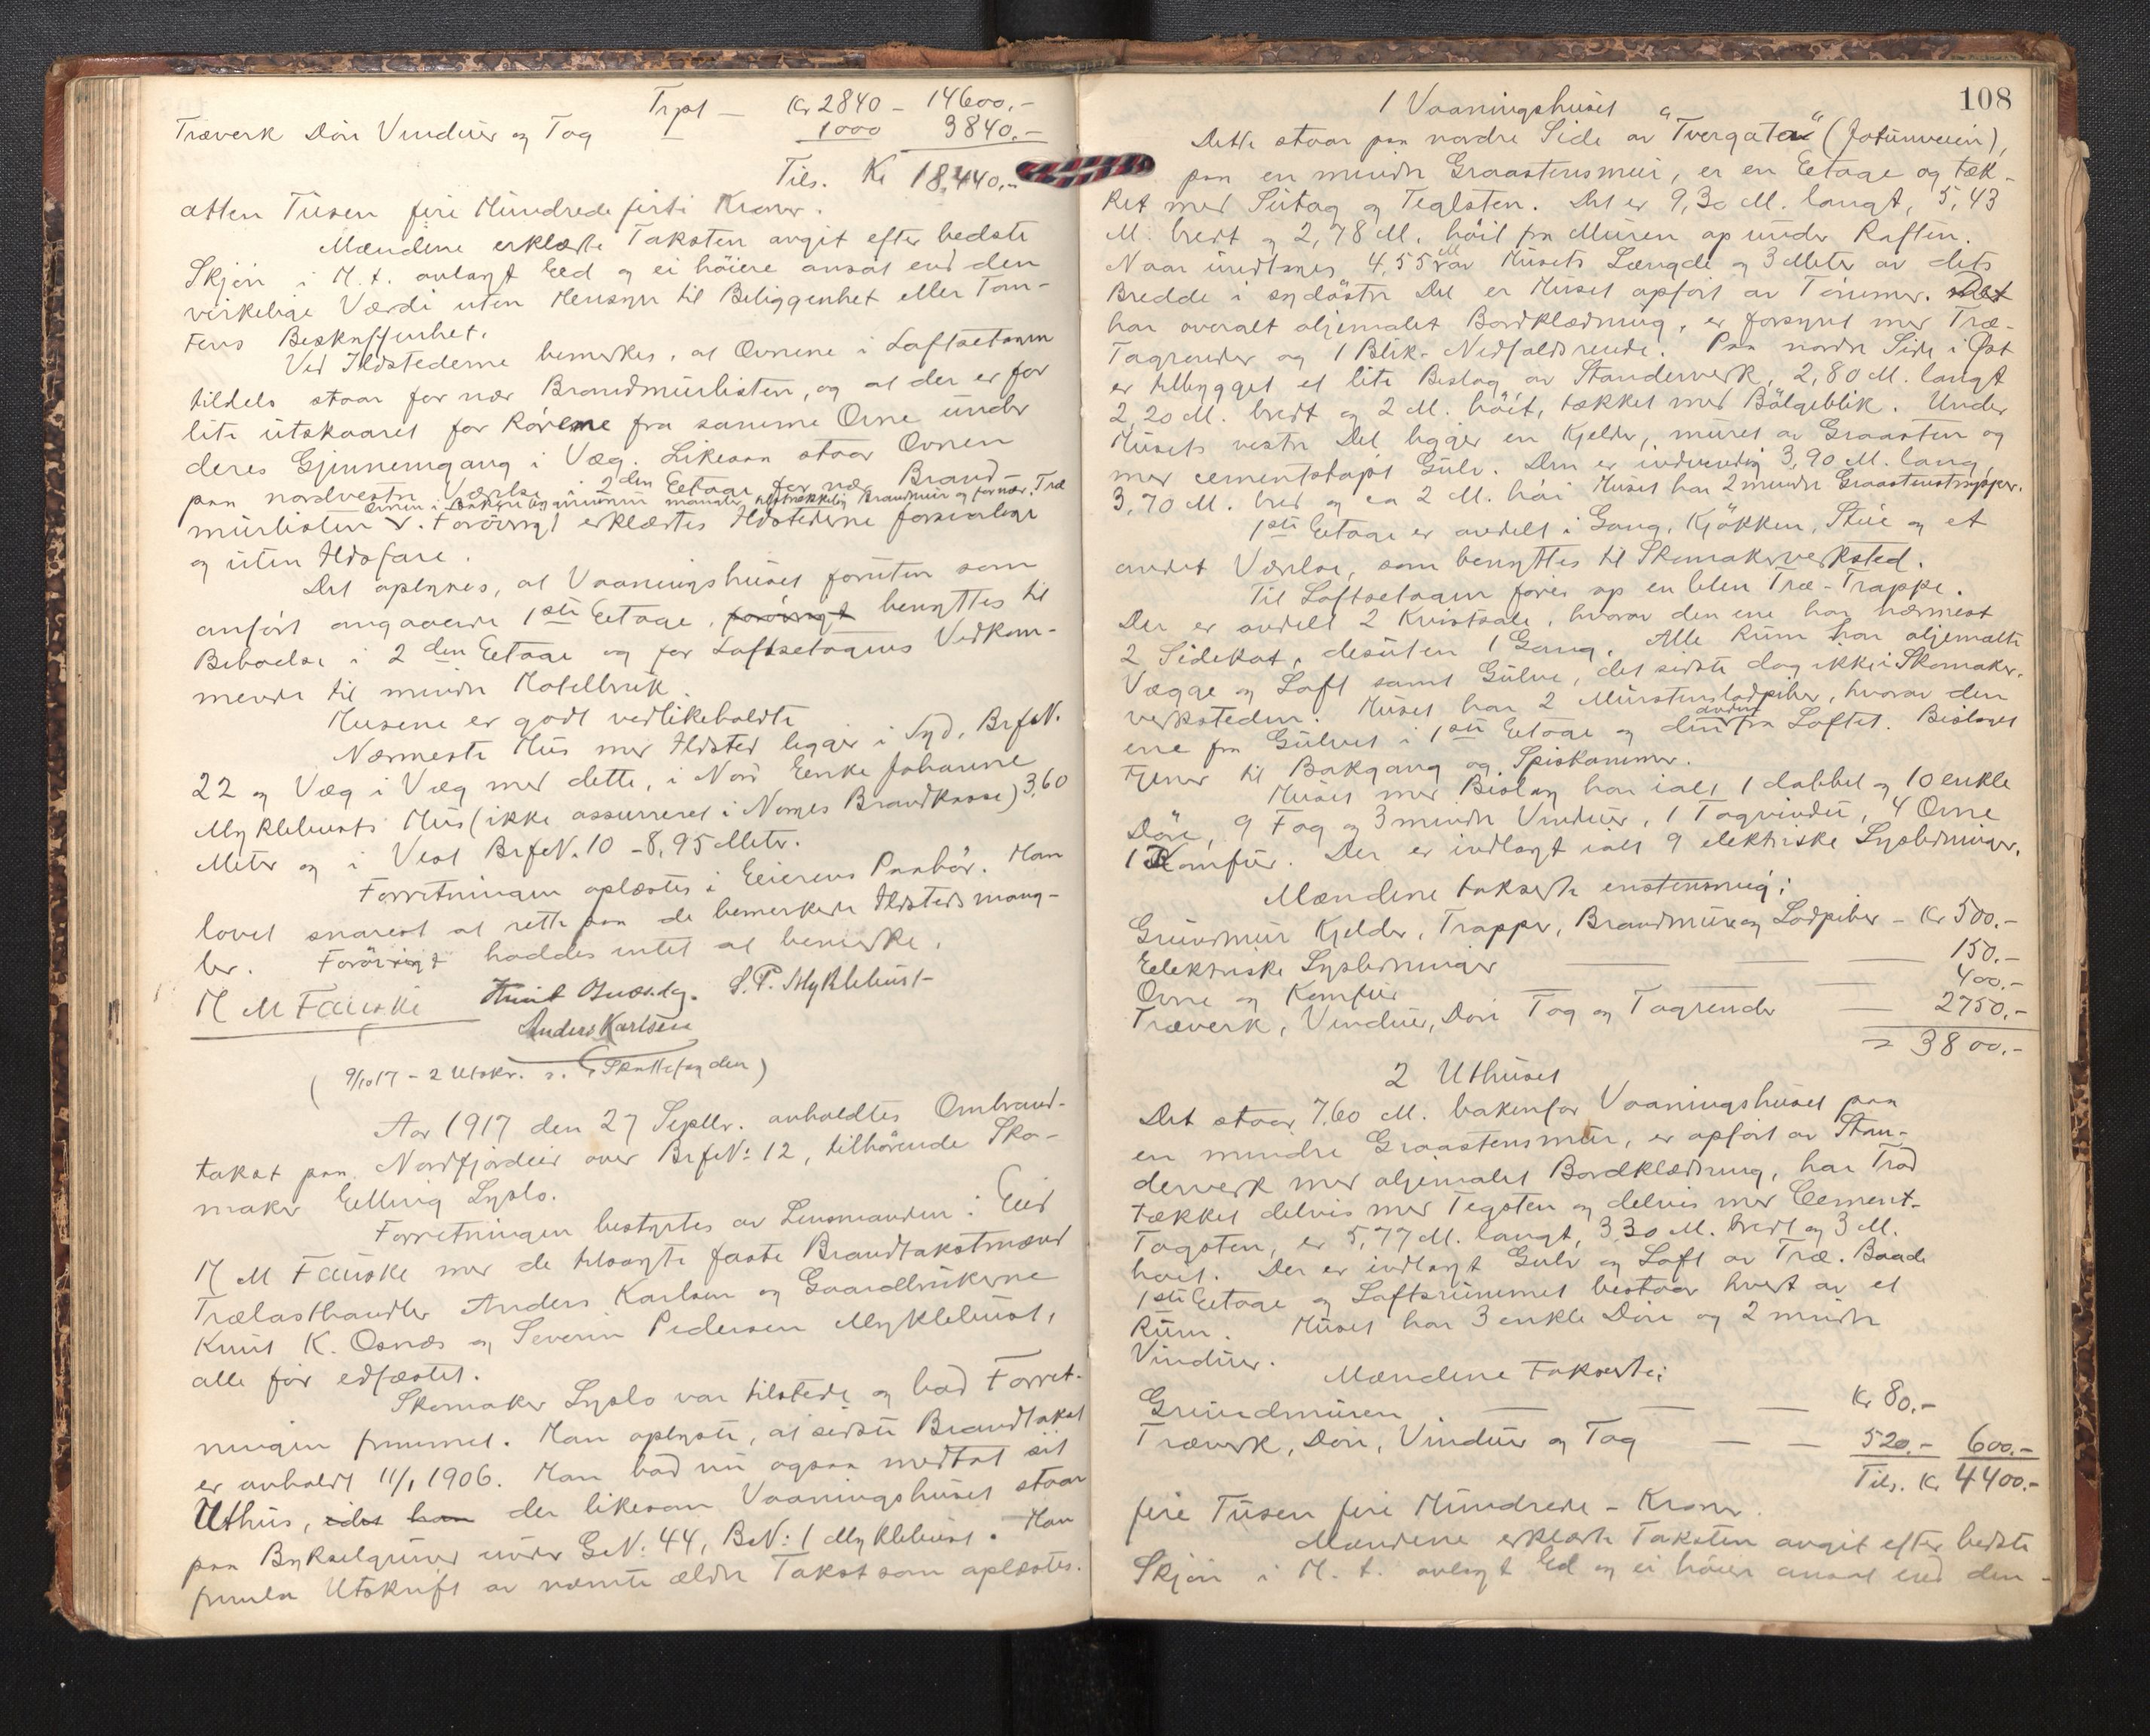 Trpt — Kr 2840 — 14600,-
Træverk Döre Vinduer og Tag — 1000 3840.-
Tils. Kr 18,440,-
atten Tusen fire Hundrede firti Kroner.
Mændene erklærte Taksten avgit efter bedste
Skjön i H. t. avlagt Eed og ei höiere ansat end den
virkelige Værdi uten Hensyn til Beliggenhet eller Tom-
tens Beskaffenhet.
Ved Ildstederne bemerkes, at Ovnene i Loftsetagen
tildels staar for nær Brandmurlisten, og at der er for
lite utskaaret for Rörene fra samme Ovne under
deres Gjennemgang i Væg. Likesaa staar Ovnen
paa nordvestre Værelse i 2den Eetage for nær Brand-
Ovnen i mangler tilstrækkelig Brandmur og for nær Træ
murlisten v. Forövrigt erklærtes Ildstederne forsvarlige
og uten Ildsfare.
Det oplyses, at Vaaningshuset foruten som
anfört angaaende 1ste Eetage, forövrigt benyttes til
Beboelse i 2den Eetage og for Loftsetagens Vedkom-
mende til mindre Hotelbruk.
Husene er godt vedlikeholdte
Nærmeste Hus med Ildsted ligger i Syd, BrfeN.
22 og Væg i Væg med dette, i Nord Enke Johanne
Myklebusts Hus (ikke assurreret i Norges Brandkasse) 3,60
Meter og i Vest BrfeN. 10 - 8,95 Meter.
Forretningen oplæstes i Eierens Paahör. Han
lovet snarest at rette paa de bemerkede Ildstedsmang-
ler. Forövrigt haddes intet at bemerke.
H M Fauske Knut Osnæs S. P. Myklebust
Anders Karlsen
( 9/10 17 - 2 Utskr. s. Skattefogden )
Aar 1917 den 27 Septbr. avholdtes Ombrand-
takst paa Nordfjordeid over BrfeN: 12, tilhörende Sko-
maker Elling Lyslo.
Forretningen bestyrtes av Lensmanden i Eid
H M Fauske med de tilsagte faste Brandtakstmænd
Trælasthandler Anders Karlsen og Gaardbrukerne
Knut K. Osnæs og Severin Pedersen Myklebust,
alle för edfæstet.
Skomaker Lyslo var tilstede og bad Forret-
ningen fremmet. Han oplyste, at sidste Brandtakst
er avholdt 11/1 1906. Han bad nu ogsaa medtat sit
Uthus, idet han der likesom Vaaningshuset staar
paa Bykselgrund under GN: 44, BN: 1 Myklebust. Han
fremla Utskrift av nævnte ældre Takst som oplæstes.
108
1 Vaaningshuset
Dette staar paa nordre Side av "Tvergaten" (Jotunveien),
paa en mindre Graastensmur, er en Eetage og tæk-
ket med Sutag og Teglsten. Det er 9,30 M. langt, 5,43
M. bredt og 2,78 M. höit fra Muren op under Raften.
Naar undtages 4,55 M. av Husets Længde og 3 Meter av dets
Bredde i sydöstre Del er Huset opfört av Tömmer. Det
har overalt oljemalet Bordklædning, er forsynt med Træ-
Tagrender og 1 Blik-Nedfaldsrende. Paa nordre Side i Öst
er tilbygget et lite Bislag av Standerverk, 2,80 M. langt
2,20 M. bredt og 2 M. höit, tækket med Bölgeblik. Under
Husets vestre Del ligger en Kjelder, muret av Graasten og
med cementstöpt Gulv. Den er indvendig 3,90 M. lang,
3,70 M. bred og ca 2 M. höi. Huset har 2 mindre Graastenstrapper.
1ste Eetage er avdelt i Gang, Kjökken, Stue og et
andet Værelse, som benyttes til Skomakerverksted.
Til Loftsetagen förer op en liten Træ-Trappe.
Der er avdelt 2 Kvistsale, hvorav den ene har nærmest
2 Sidekot, desuten 1 Gang. Alle Rum har oljemalte
Vægge og Loft samt Gulve, det sidste dog ikke i Skomaker-
verksteden. Huset har 2 Murstenslodpiber, hvorav den
ene fra Gulvet i 1ste Eetage og den anden fra Loftet. Bislaget
tjener til Bakgang og Spiskammer.
Huset med Bislag har ialt 1 dobbel og 10 enkle
Döre, 9 Fag og 3 mindre Vinduer, 1 Tagvindu, 4 Ovne
1 Komfur. Der er indlagt ialt 9 elektriske Lysledninger.
Mændene takserte enstemmig:
Grundmur Kjelder, Trapper, Brandmure og Lodpiber - Kr 500.-
Elektriske Lysledninger — — — 150.-
Ovne og Komfur — 400.-
Træverk, Vinduer, Döre Tag og Tagrender — 2750.-
= 3800.-
2 Uthuset
Det staar 7,60 M. bakenfor Vaaningshuset paa
en mindre Graastensmur, er opfört av Stan-
derverk med oljemalet Bordklædning, har Tag
tækket delvis med Teglsten og delvis med Cement-
Tagsten, er 5,77 M. langt, 3,30 M. bredt og 3 M.
höit. Der er indlagt Gulv og Loft av Træ. Baade
1ste Eetage og Loftsrummet bestaar hvert av et
Rum. Huset har 3 enkle Döre og 2 mindre
Vinduer.
Mændene takserte:
Grundmuren — — — Kr 80.-
Træverk, Döre, Vinduer og Tag — — 520.- 600.-
Tils. Kr 4400.-
fire Tusen fire Hundrede - Kroner.
Mændene erklærte Taksten avgit efter bedste
Skjön i H. t. avlagt Ed og ei höiere ansat end den-